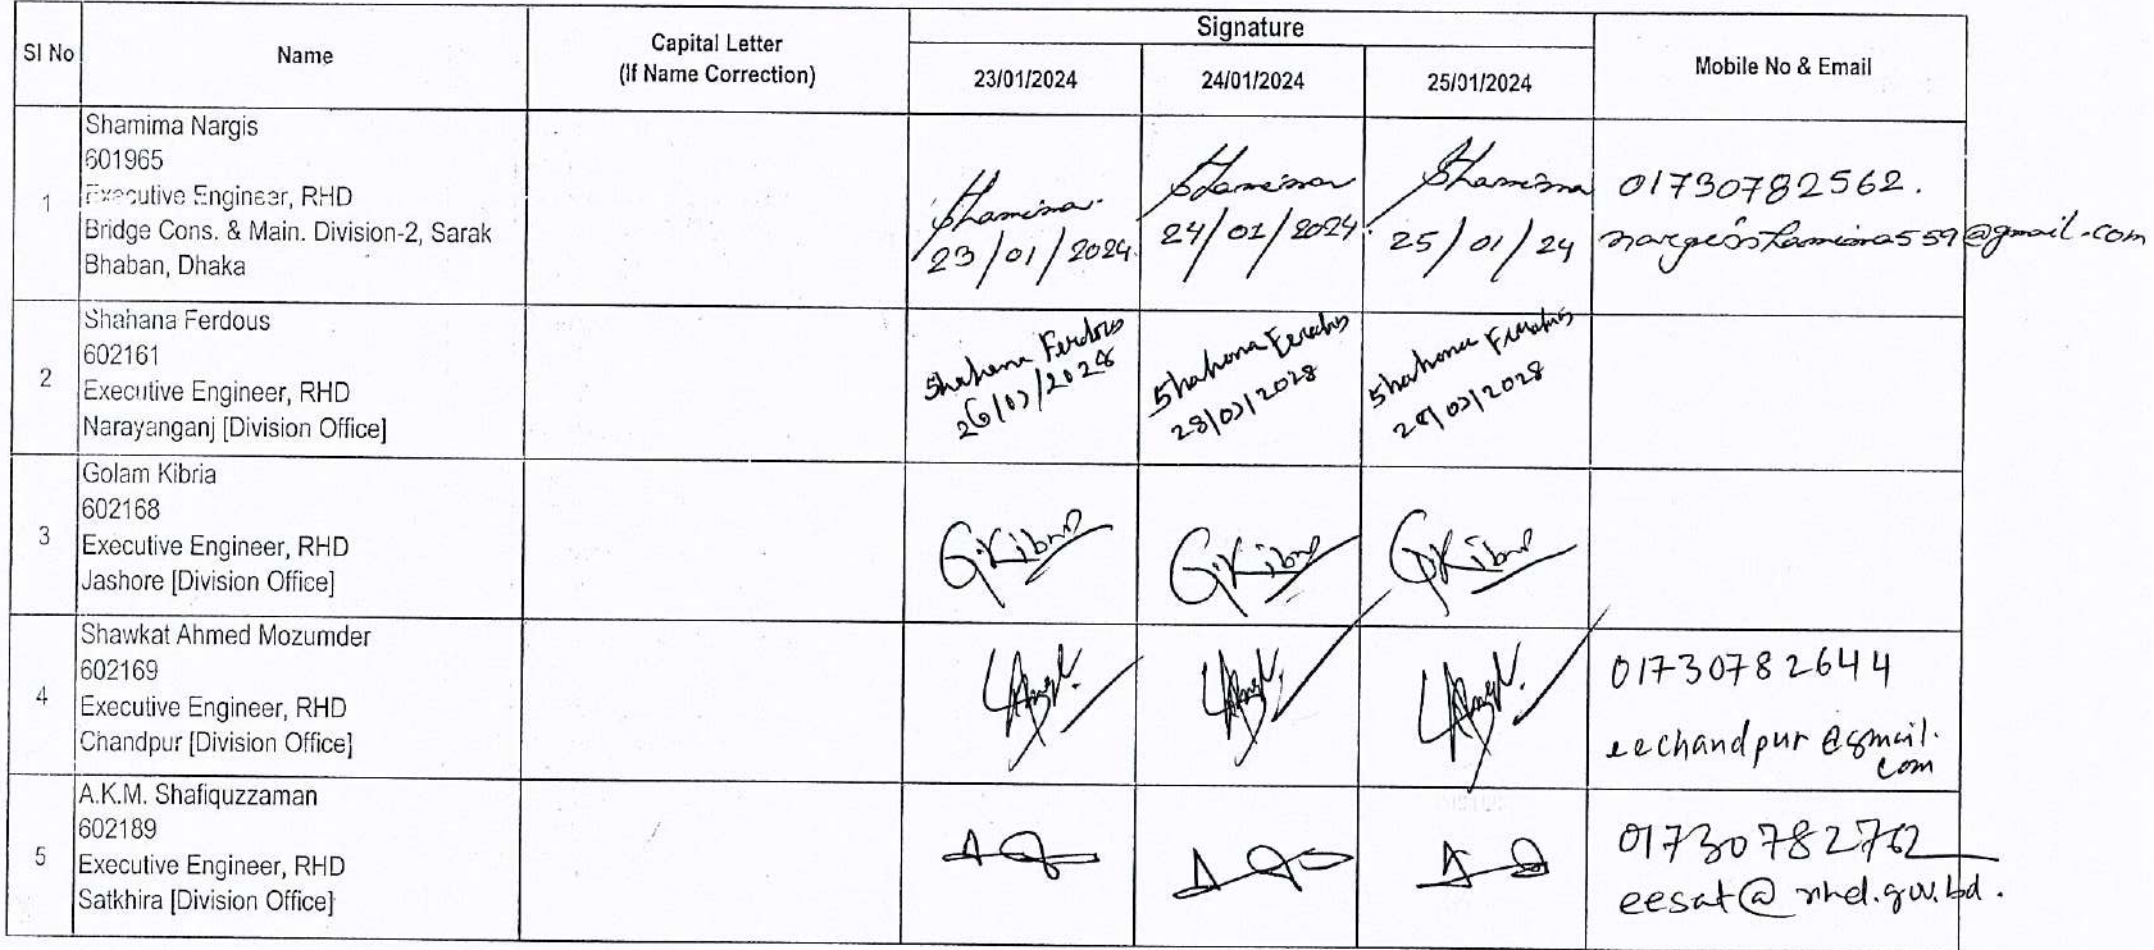 Sl No
Name
Capital Letter
(If Name Correction)
Signature
23/01/2024
24/01/2024
25/01/2024
Mobile No & Email
1
Shamima Nargis
601965
Executive Engineer, RHD
Bridge Cons. & Main. Division-2, Sarak
Bhaban, Dhaka
Shamima
23/01/2024
Shamima
24/01/2024
Shamima
25/01/24
01730782562.
nargisshamima559@gmail.com
2
Shahana Ferdous
602161
Executive Engineer, RHD
Narayanganj [Division Office]
Shahana Ferdous
Shahana Ferdous
Shahana Ferdous
3
Golam Kibria
602168
Executive Engineer, RHD
Jashore [Division Office]
G.Kibria
G.Kibria
G.Kibria
4
Shawkat Ahmed Mozumder
602169
Executive Engineer, RHD
Chandpur [Division Office]
01730782644
eechandpur@gmail.
com
5
A.K.M. Shafiquzzaman
602189
Executive Engineer, RHD
Satkhira [Division Office]
01730782762
eesat@rhd.gov.bd.